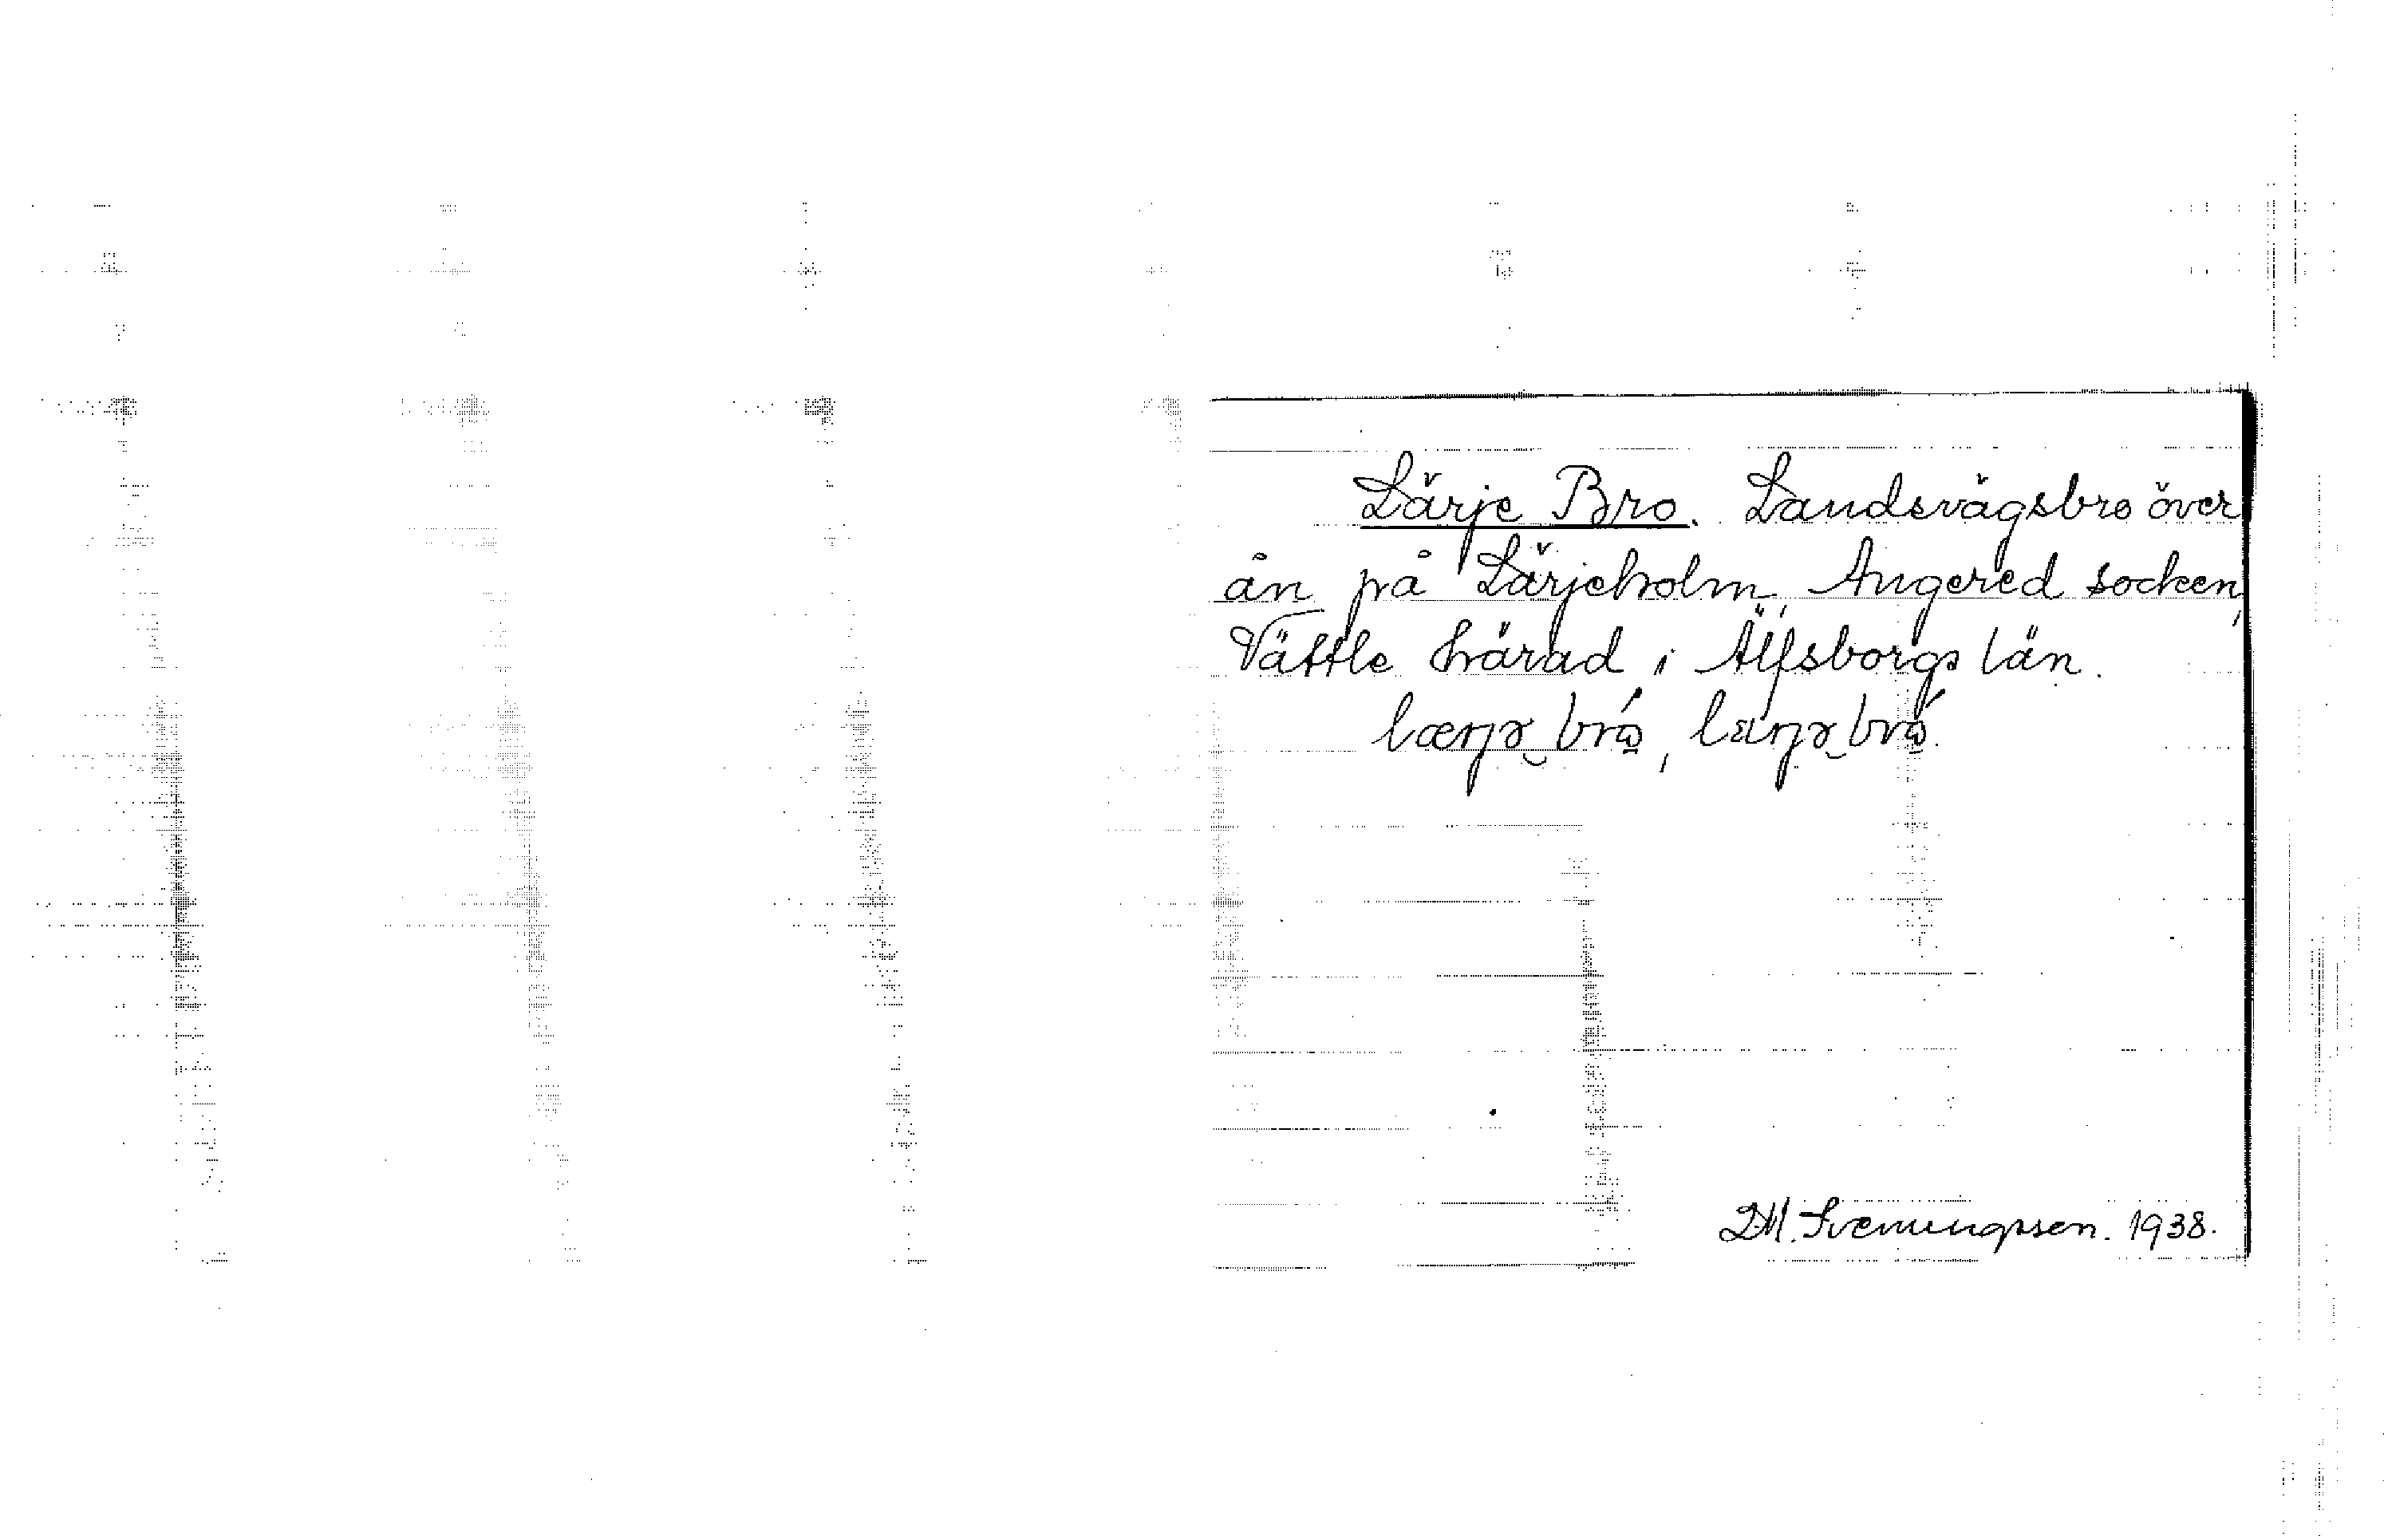 Lärje Bro. Landsvägsbro över
ån på Lärjeholm, Angered socken,
Vättle härad i Älfsborgs län.
bró, bró.
D.M. Svenungssen. 1938.